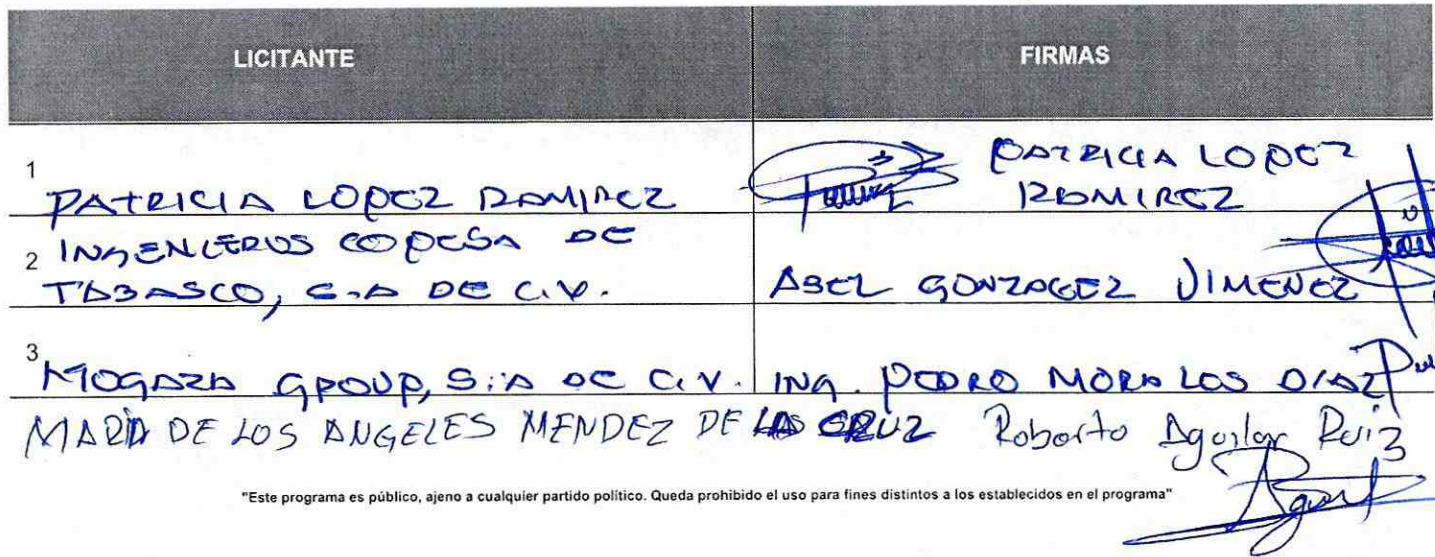 LICITANTE
FIRMAS
1
PATRICIA LOPEZ RAMIREZ
PATRICIA LOPEZ
RAMIREZ
INGENIEROS COPESA DE
2
TABASCO, S.A DE C.V.
ABEL GONZALEZ JIMENEZ
3
MOGAZA GROUP, S.A DE C.V.
ING. PEDRO MORALOS DIAZ
MARIA DE LOS ANGELES MENDEZ DE LA CRUZ
Roberto Aguilar Ruiz
"Este programa es público, ajeno a cualquier partido político. Queda prohibido el uso para fines distintos a los establecidos en el programa"